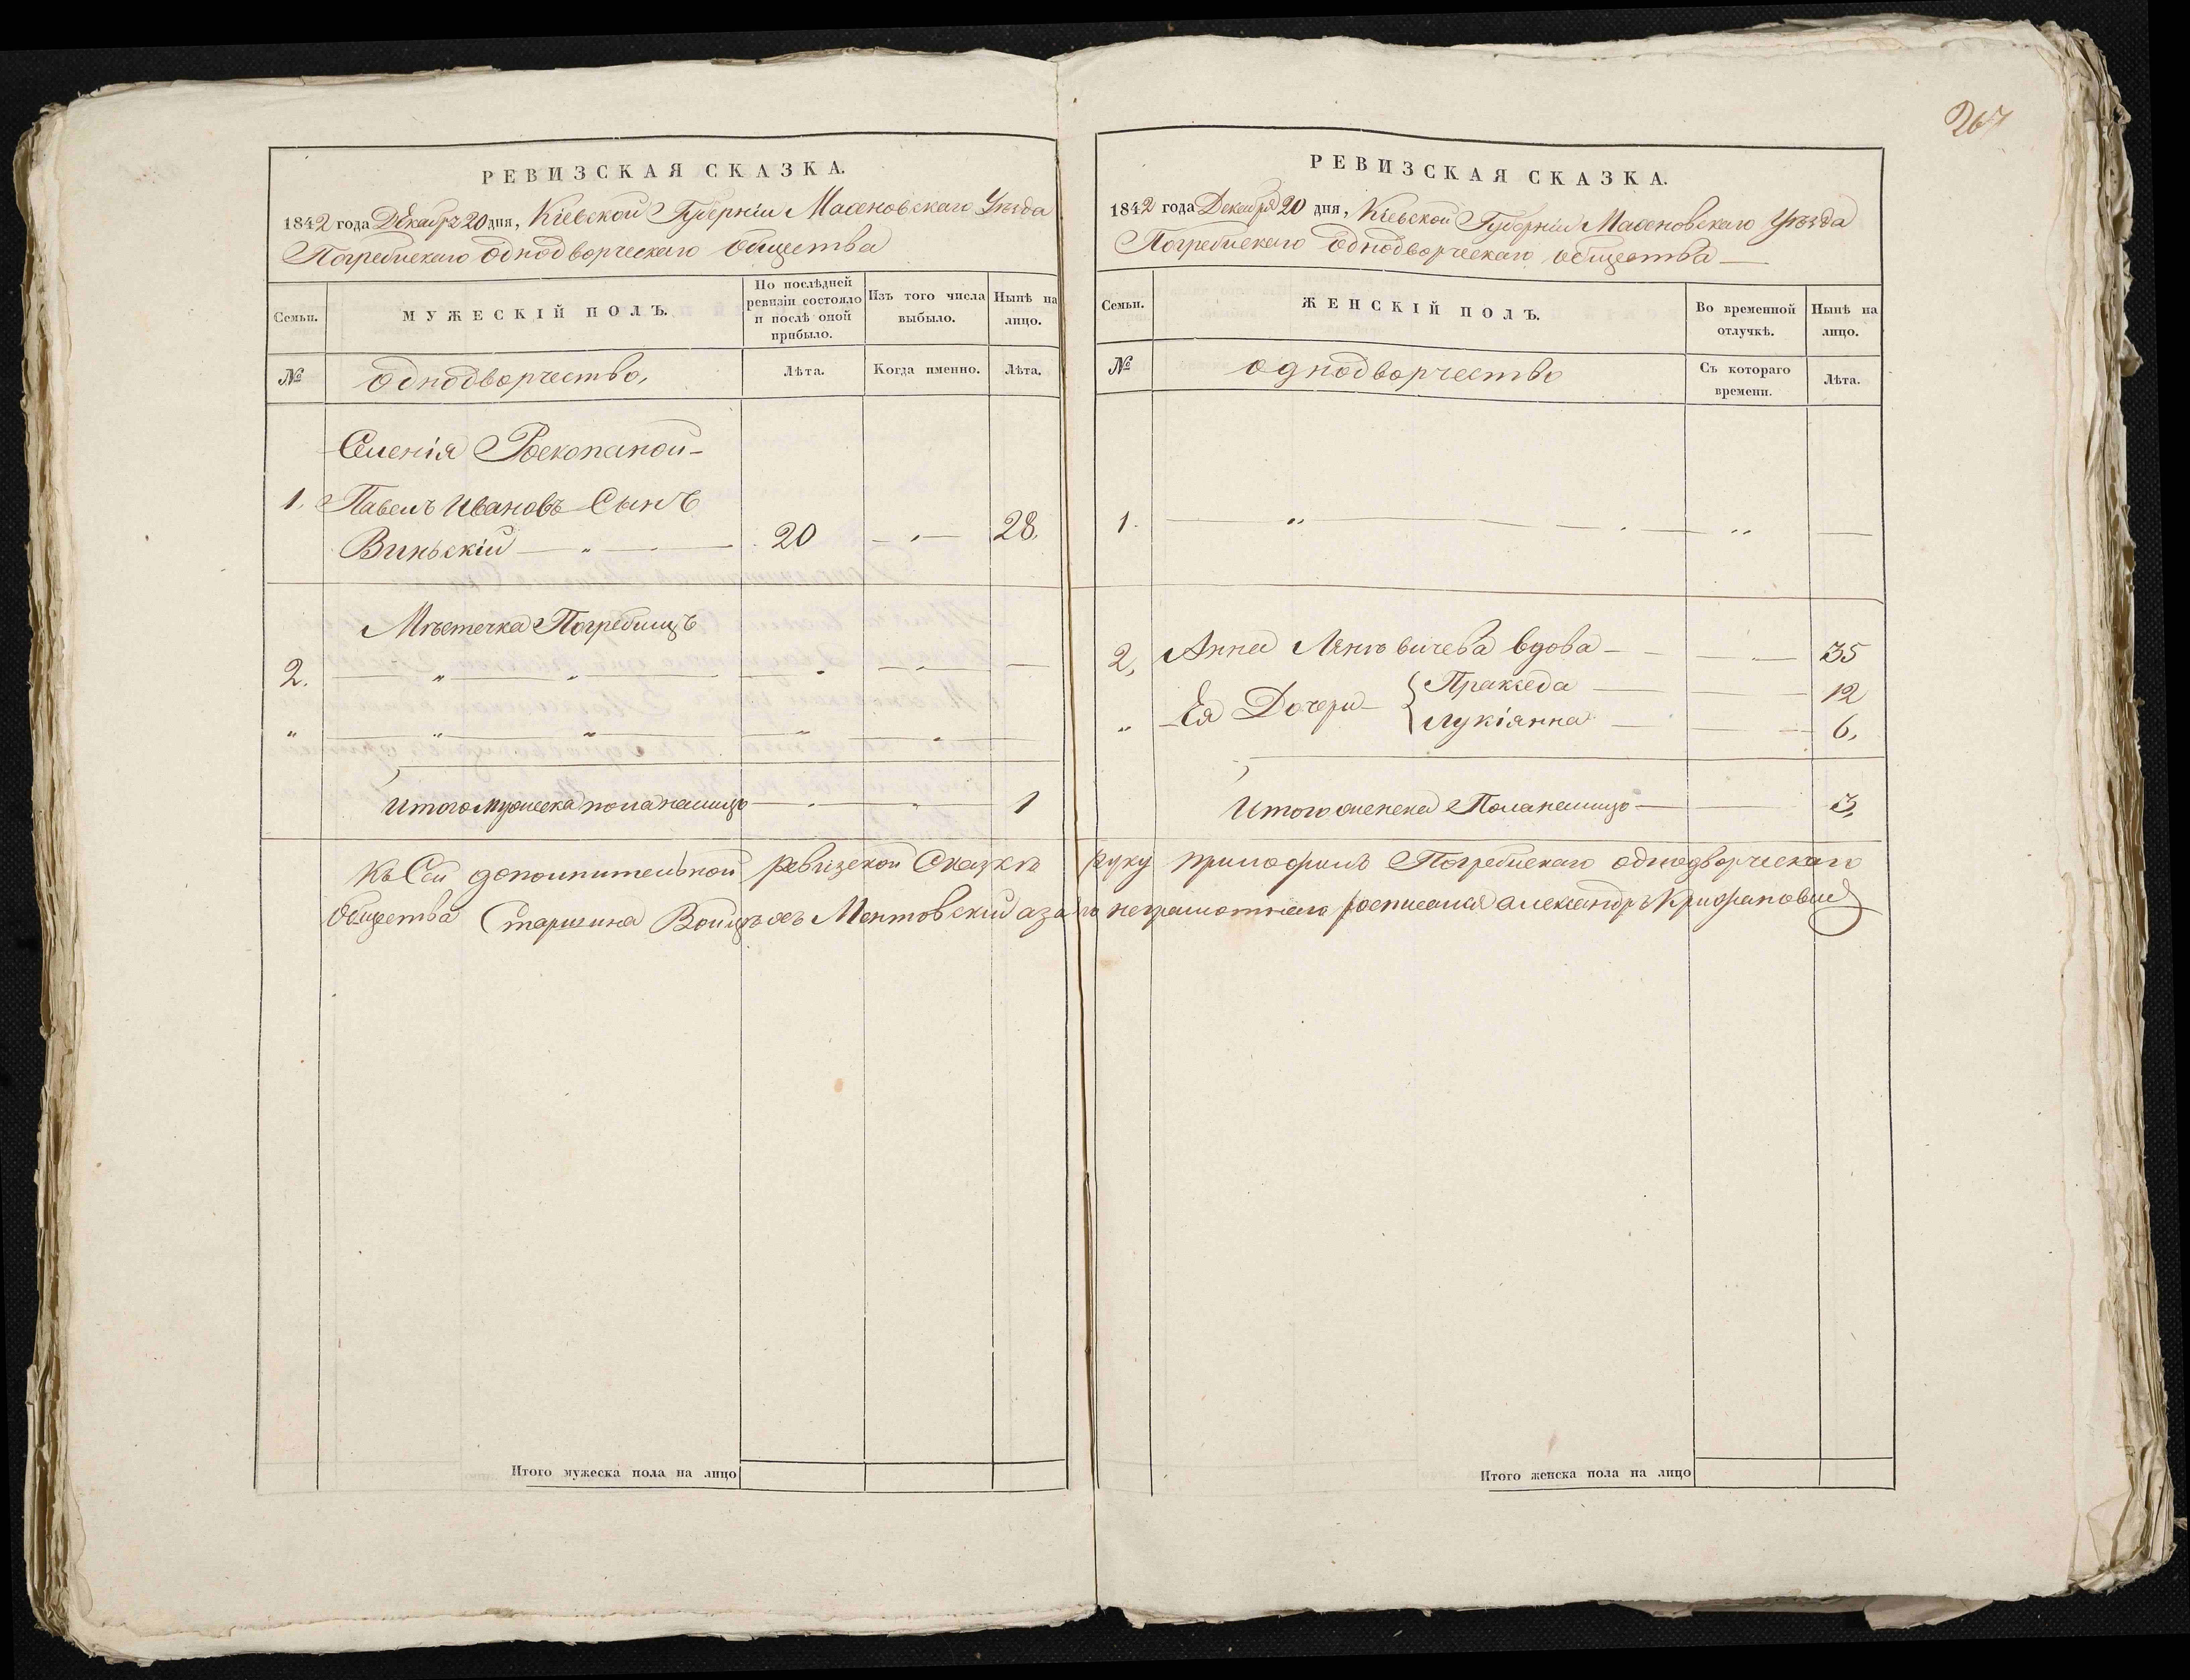 267
РЕВИЗСКАЯ СКАЗКА.
1842 года Декабря 20 дня, Кіевской Губерніи Махновскаго Уѣзда
Погребискаго однодворческаго общества
Семьи.
МУЖЕСКІЙ ПОЛЪ.
По послѣдней
ревизіи состояло
и послѣ оной
прибыло.
Изъ того числа
выбыло.
Нынѣ на
лицо.
№
однодворчество,
Лѣта.
Когда именно.
Лѣта.
Селенія Роскопаной
1. Павелъ Ивановъ Сынъ
Виньскій — „ — 20 — „ — 28.
Мѣстечка Погребищъ
2. — „ — „ — „ — „ —
„ — „ — „ — „ — „ —
Итого мужеска пола налицо — „ — „ 1
РЕВИЗСКАЯ СКАЗКА.
1842 года Декабря 20 дня, Кіевской Губерніи Махновскаго Уѣзда
Погребискаго Однодворческаго общества —
Семьи.
ЖЕНСКІЙ ПОЛЪ.
Во временной
отлучкѣ.
Нынѣ на
лицо.
№
однодворчество
Съ котораго
времени.
Лѣта.
1. — „ — „ — „ —
2, Анна вдова — — 35
„ Ея Дочери { Пракседа — — 12
Лукіянна — — 6,
Итого женска Пола налицо — — 3,
Къ Сей дополнительной ревизской Сказкѣ руку приложилъ Погребискаго однодворческаго
Общества Старшина Войцѣхъ Ментовскій а за его неграмотнаго росписался Александръ
Итого мужеска пола на лицо
Итого женска пола на лицо